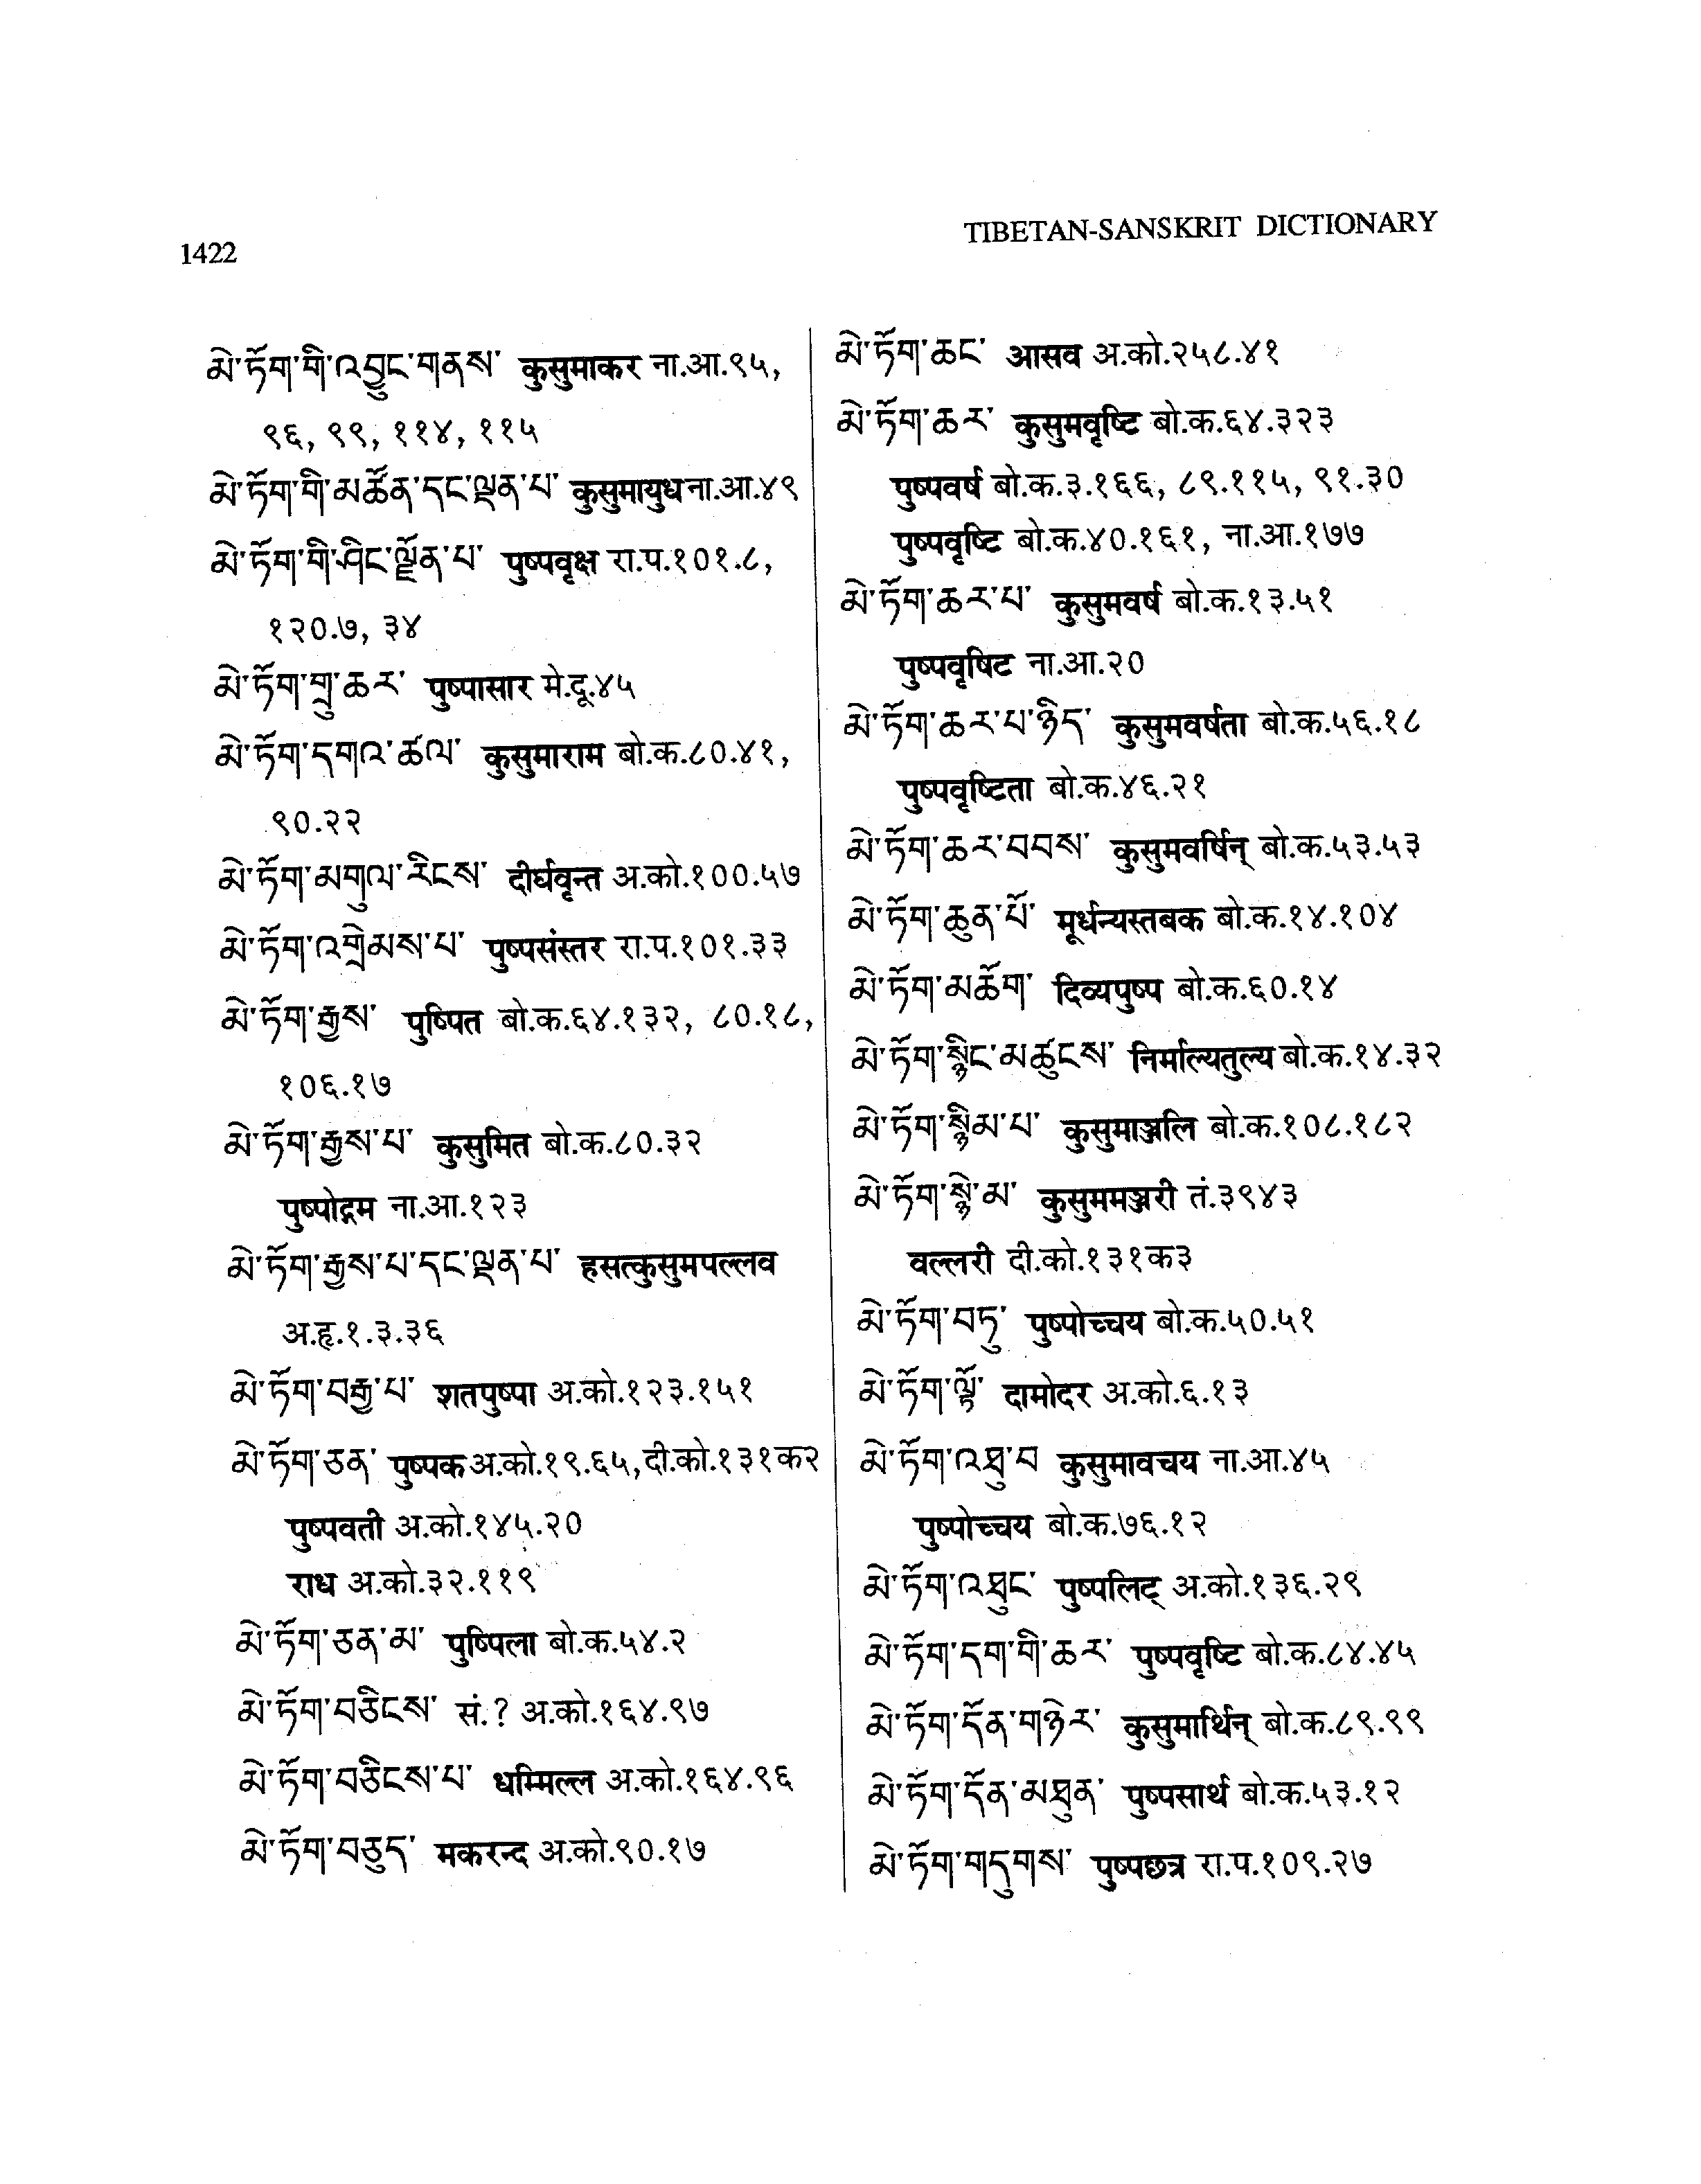 1422
TIBETAN-SANSKRIT DICTIONARY
མེ་ཏོག་གི་འབྱུང་གནས་ कुसुमाकर ना.आ.९५,
९६, ९९, ११४, ११५
མེ་ཏོག་གི་མཚོན་དང་ལྡན་པ་ कुसुमायुध ना.आ.४९
མེ་ཏོག་གི་ཤིང་ལྗོན་པ་ पुष्पवृक्ष रा.प.१०१.८,
१२०.७, ३४
མེ་ཏོག་གྲུ་ཆར་ पुष्पासार मे.दू.४५
མེ་ཏོག་དགའ་ཚལ་ कुसुमाराम बो.क.८०.४१,
९०.२२
མེ་ཏོག་མགུལ་རིངས་ दीर्घवृन्त अ.को.१००.५७
མེ་ཏོག་འགྲེམས་པ་ पुष्पसंस्तर रा.प.१०१.३३
མེ་ཏོག་རྒྱས་ पुष्पित बो.क.६४.१३२, ८०.१८,
१०६.१७
མེ་ཏོག་རྒྱས་པ་ कुसुमित बो.क.८०.३२
पुष्पोद्गम ना.आ.१२३
མེ་ཏོག་རྒྱས་པ་དང་ལྡན་པ་ हसत्कुसुमपल्लव
अ.हृ.१.३.३६
མེ་ཏོག་བརྒྱ་པ་ शतपुष्पा अ.को.१२३.१५१
མེ་ཏོག་ཅན་ पुष्पक अ.को.१९.६५,दी.को.१३१क२
पुष्पवती अ.को.१४५.२०
राध अ.को.३२.११९
མེ་ཏོག་ཅན་མ་ पुष्पिला बो.क.५४.२
མེ་ཏོག་བཅིངས་ सं.? अ.को.१६४.९७
མེ་ཏོག་བཅིངས་པ་ धम्मिल्ल अ.को.१६४.९६
མེ་ཏོག་བཅུད་ मकरन्द अ.को.९०.१७
མེ་ཏོག་ཆང་ आसव अ.को.२५८.४१
མེ་ཏོག་ཆར་ कुसुमवृष्टि बो.क.६४.३२३
पुष्पवर्ष बो.क.३.१६६, ८९.११५, ९१.३०
पुष्पवृष्टि बो.क.४०.१६१, ना.आ.१७७
མེ་ཏོག་ཆར་པ་ कुसुमवर्ष बो.क.१३.५१
पुष्पवृषिट ना.आ.२०
མེ་ཏོག་ཆར་པ་ཉིད་ कुसुमवर्षता बो.क.५६.१८
पुष्पवृष्टिता बो.क.४६.२१
མེ་ཏོག་ཆར་བབས་ कुसुमवर्षिन् बो.क.५३.५३
མེ་ཏོག་ཆུན་པོ་ मूर्धन्यस्तबक बो.क.१४.१०४
མེ་ཏོག་མཆོག་ दिव्यपुष्प बो.क.६०.१४
མེ་ཏོག་སྙིང་མཚུངས་ निर्माल्यतुल्य बो.क.१४.३२
མེ་ཏོག་སྙིམ་པ་ कुसुमाञ्जलि बो.क.१०८.१८२
མེ་ཏོག་སྙེ་མ་ कुसुममञ्जरी तं.३९४३
वल्लरी दी.को.१३१क३
མེ་ཏོག་བཏུ་ पुष्पोच्चय बो.क.५०.५१
མེ་ཏོག་ལྟོ་ दामोदर अ.को.६.१३
མེ་ཏོག་འཐུ་བ कुसुमावचय ना.आ.४५
पुष्पोच्चय बो.क.७६.१२
མེ་ཏོག་འཐུང་ पुष्पलिट् अ.को.१३६.२९
མེ་ཏོག་དག་གི་ཆར་ पुष्पवृष्टि बो.क.८४.४५
མེ་ཏོག་དོན་གཉེར་ कुसुमार्थिन् बो.क.८९.९९
མེ་ཏོག་དོན་མཐུན་ पुष्पसार्थ बो.क.५३.१२
མེ་ཏོག་གདུགས་ पुष्पछत्र रा.प.१०९.२७